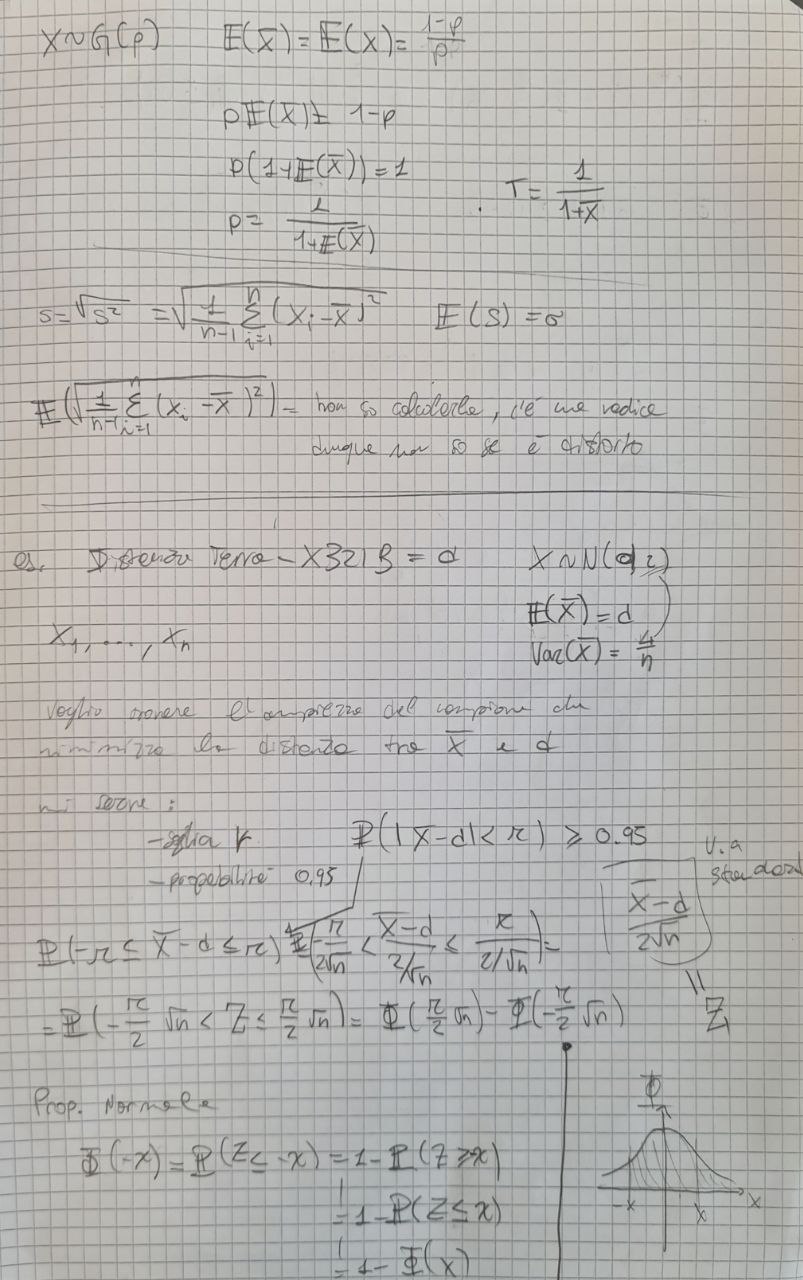 X~G(p) E(X̅) = E(X) = (1-p)/p
pE(X̅) = 1-p
p(1+E(X̅)) = 1
p = 1/(1+E(X̅)) T = 1/(1+X̅)
S = √S² = √(1/(n-1) Σ_{i=1}^{n} (Xᵢ - X̅)²) E(S) = σ
E(√(1/(n-1) Σ_{i=1}^{n} (Xᵢ - X̅)²)) = non so calcolarla, c'è una radice
dunque non so se è distorto
es. Distanza Terra - X321B = d X~N(d,2)
E(X̅) = d
X₁, ..., Xₙ Var(X̅) = 4/n
Voglio trovare l'ampiezza del campione che
minimizza la distanza tra X̅ e d
mi serve:
- soglia r P(|X̅-d|<r) ≥ 0.95 v.a
- probabilità 0.95 standard
P(-r ≤ X̅-d ≤ r) P(-r/2√n < (X̅-d)/(2/√n) ≤ r/(2/√n)) = (X̅-d)/2√n
= P(-r/2 √n < Z ≤ r/2 √n) = Φ(r/2 √n) - Φ(-r/2 √n) = Z
Prop. Normale Φ
Φ(-x) = P(Z ≤ -x) = 1-P(Z ≥ x) -x x x
= 1-P(Z ≤ x)
= 1-Φ(x)